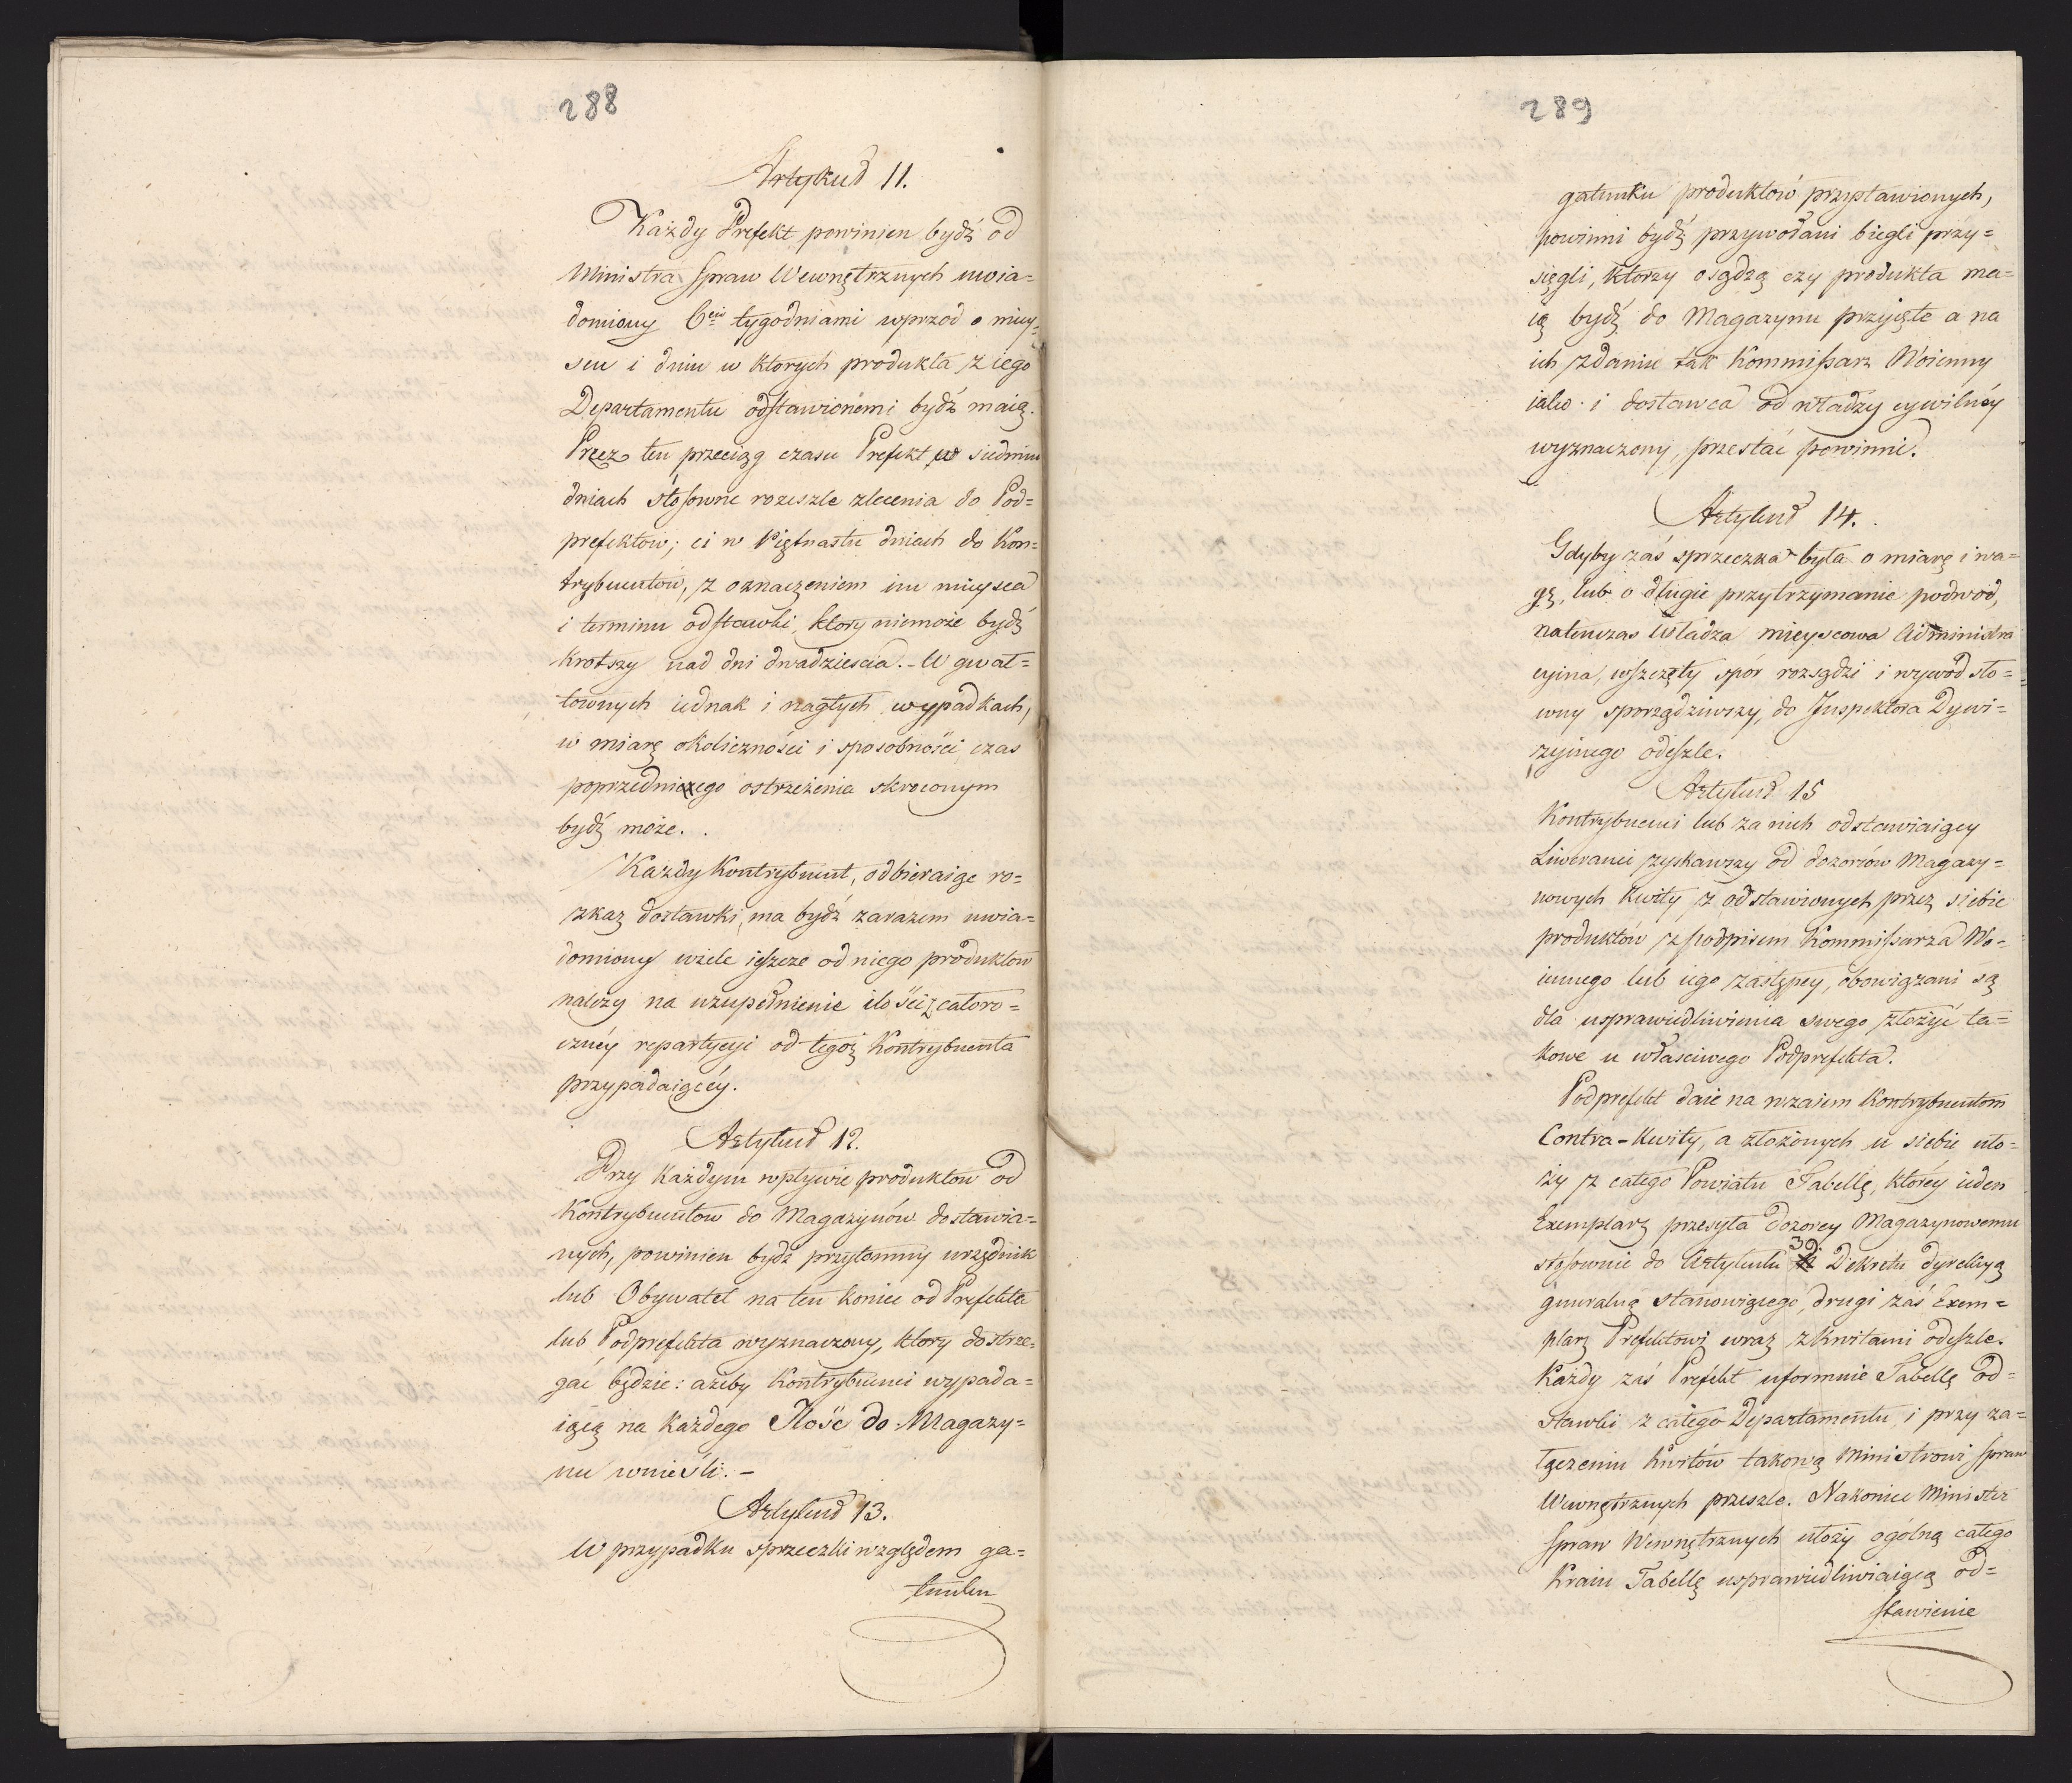 288
Artykuł 11.
Każdy Prefekt powinien bydź od
Ministra Spraw Wewnętrznych uwia=
domiony 6cią tygodniami wprzód o miey=
scu i dniu w ktorych produkta z iego
Departamentu odstawionemi bydź maią.
Przez ten przeciąg czasu Prefekt w siedmiu
dniach stosowne rozeszle zlecenia do Pod=
prefektow; ci w Piętnastu dniach do Kon=
trybuentów, z oznaczeniem im mieysca
i terminu odstawki, ktory niemoże bydź
krotszy nad dni dwadziescia. - W gwał=
townych iednak i nagłych wypadkach,
w miarę okoliczności i sposobności, czas
poprzedniczego ostrzeżenia skroconym
bydź może.
Każdy Kontrybuent, odbieraiąc ro=
zkaz dostawki, ma bydź zarazem uwia=
domiony wiele ieszcze od niego produktow
należy na uzupełnienie ilości z całoro=
czney repartycyi od tegoż Kontrybuenta
przypadaiącéy.
Artykuł 12.
Przy każdym wpływie produktow od
Kontrybuentow do Magazynów dostawia=
nych, powinien bydź przytomny urzędnik
lub Obywatel na ten koniec od Prefekta
lub Podprefekta wyznaczony, ktory dostrze=
gać będzie: ażeby Kontrybuenci wypada=
iącą na każdego Ilość do Magazy=
nu wnieśli. -
Artykuł 13.
W przypadku sprzeczki względem ga=
tunku
289
gatunku produktów przystawionych,
powinni bydź przywołani biegli przy=
sięgli, ktorzy osądzą czy produkta ma=
ią bydź do Magazynu przyięte a na
ich zdaniu tak Kommissarz Woienny
iako i dostawca od władzy cywilnéy
wyznaczony, przestać powinni.
Artykuł 14.
Gdyby zaś sprzeczka była o miarę i wa=
gę, lub o długie przytrzymanie podwod,
natenczas Władza mieyscowa Administra
cyina, wszczęty spór rozsądzi i wywód sło=
wny sporządziwszy, do Inspektora Dywi=
zyinego odeszle.
Artykuł 15
Kontrybuenci lub za nich odstawiaiący
Liweranci zyskawszy od dozorców Magazy=
nowych kwity z odstawionych przez siebie
produktów z podpisem Kommissarza Wo=
iennego lub iego zastępcy, obowiązani są
dla usprawiedliwienia swego złożyć ta=
kowe u właściwego Podprefekta.
Podprefekt daie na wzaiem Kontrybuentom
Contra-Kwity, a złożonych u siebie uło=
ży z całego Powiatu Tabellę, któréy ieden
Exemplarz przesyła dozorcy Magazynowemu
stosownie do Artykułu 39 Dekretu dyrekcyą
generalną stanowiącego, drugi zaś Exem=
plarz Prefektowi wraz z kwitami odeszle.
Każdy zaś Prefekt uformuie Tabellę od=
stawki z całego Departamentu, i przy za=
łączeniu kwitów takową Ministrowi Spraw
Wewnętrznych przeszle. Nakoniec Minister
Spraw Wewnętrznych ułoży ogólną całego
Kraiu Tabellę usprawiedliwiaiącą od=
stawienie